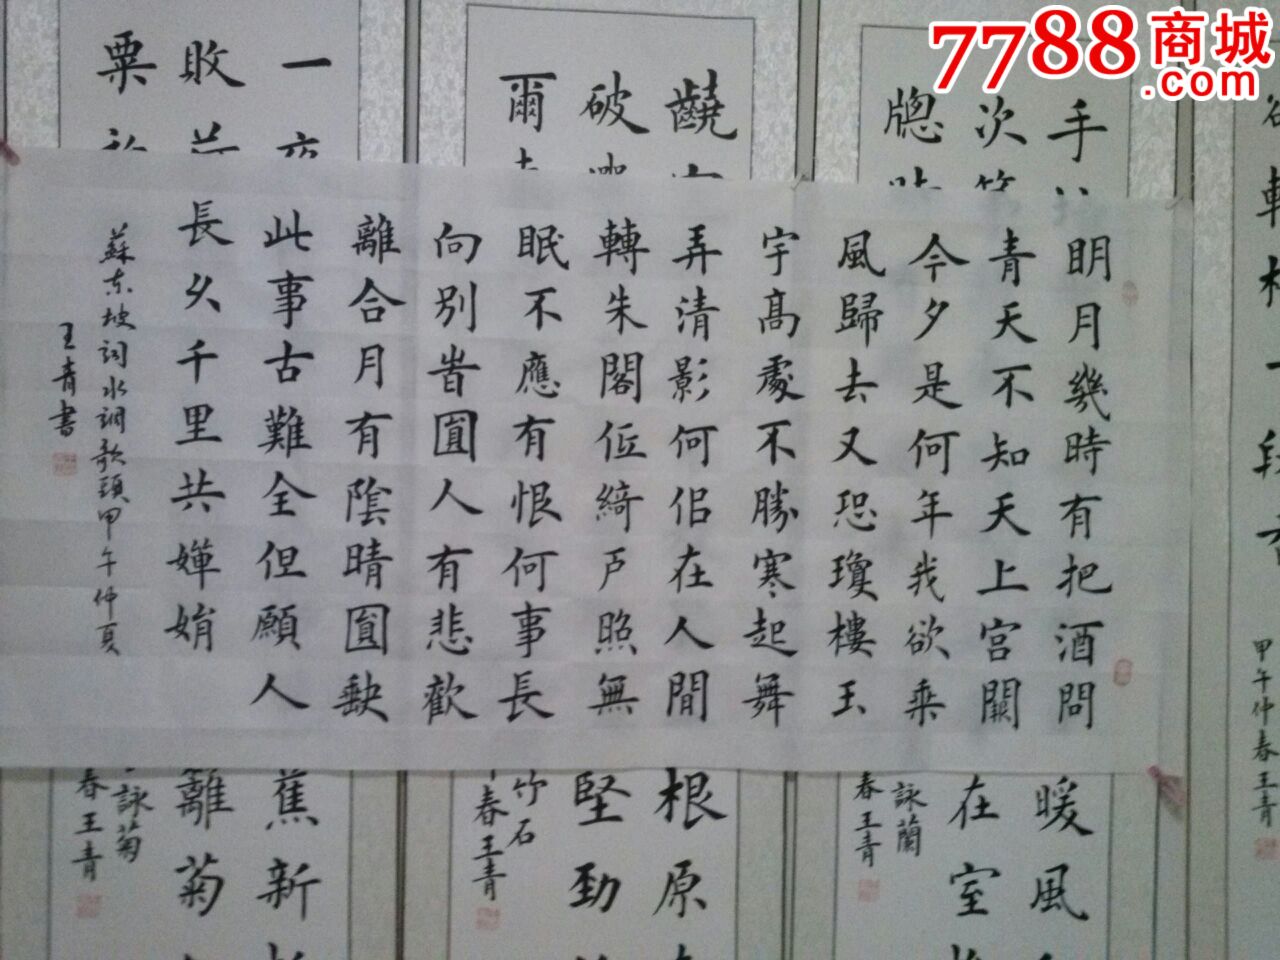 7788商城
.com
手
次
牕
破
爾
一夜
敗
粟
明月幾時有把酒問
青天不知天上宫闕
今夕是何年我欲乘
風歸去又恐瓊樓玉
宇高處不勝寒起舞
弄清影何佀在人間
轉朱閣低綺户照無
眠不應有恨何事長
向别旹圓人有悲歡
離合月有陰晴圓缺
此事古難全但願人
長久千里共嬋娟
蘇東坡詞水調歌頭甲午仲夏
王青書
甲午仲春王青
暖風
在室
詠蘭
春王青
根原
堅勁
竹石
春王青
蕉新
籬菊
詠菊
春王青